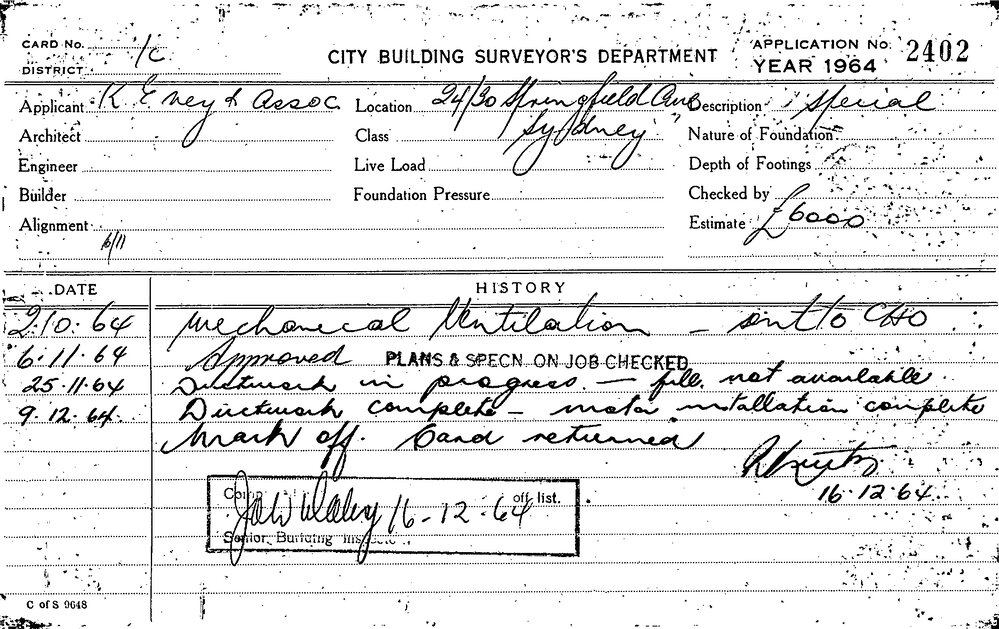 CARD No. 1/C
CITY BUILDING SURVEYOR'S DEPARTMENT
APPLICATION No. 2402
DISTRICT
YEAR 1964
Applicant K Eney & Assoc Location 24/30 Springfield Ave Description Special
Architect Class Sydney Nature of Foundation
Engineer Live Load Depth of Footings
Builder Foundation Pressure Checked by
Alignment Estimate £6000
6/11
DATE HISTORY
2.10.64 Mechanical Ventilation — sent to CHO
6.11.64 Approved PLANS & SPECN ON JOB CHECKED
25.11.64 Ductwork in progress. — file not available.
9.12.64. Ductwork complete — motor installation complete
Mark off. Card returned
16.12.64.
off list.
16-12-64
Senior Building Inspector
C of S 9648